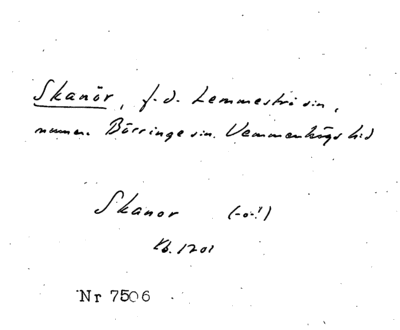 Skanör, f.d. Lemmeströ sn,
numera Börringe sn. Vemmenhögs hd
Skanor (-o-!)
Kb. 1701
Nr 7506